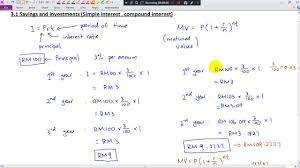 3.1 Savings and Investments (Simple interest, compound interest)
I = Prt
period of time
interest rate
principal
RM100 Principal 3% per annum
1st year I = RM100 × 3/100 × 1
= RM3
2nd year RM100 × 3/100 × 1
= RM3
3rd year RM100 × 3/100 × 1
= RM3
RM9
MV = P(1 + r/n)^nt
(matured value)
1st year RM100 × 3/100 × 1
= RM3
2nd year RM103 × 3/100 × 1
= RM3.09
3rd year
× 3/100 × 1
= RM3.1827
RM9.2727
MV = P(1 + r/n)^nt